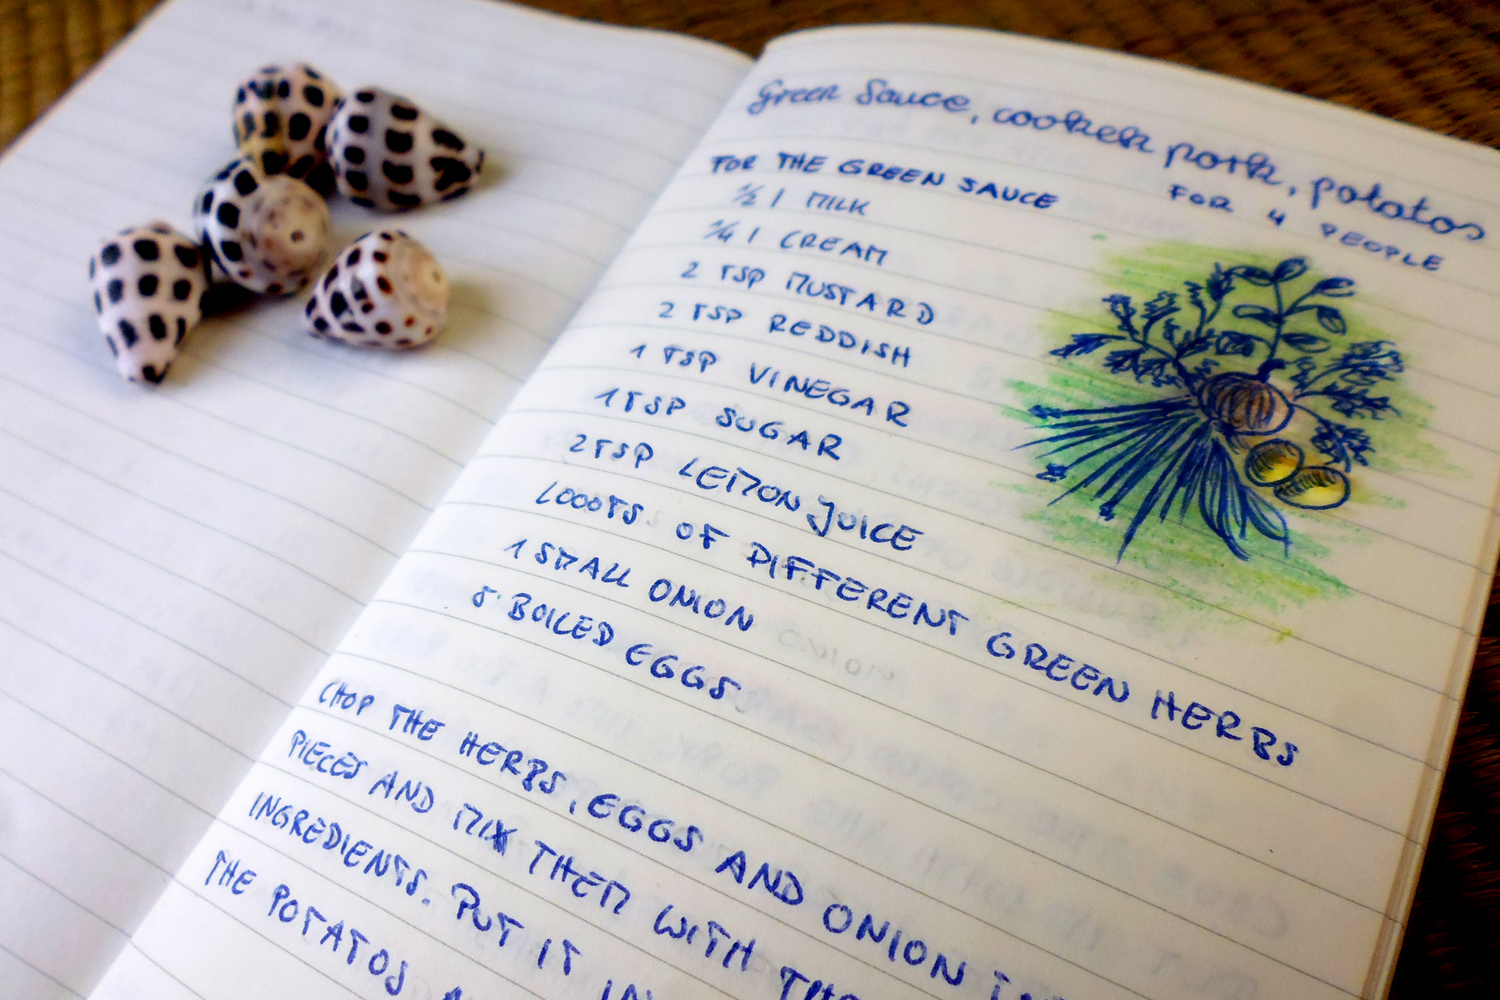 Green Sauce, cooked pork, potatos
FOR 4 PEOPLE
FOR THE GREEN SAUCE
1/2 l MILK
1/4 l CREAM
2 TSP MUSTARD
2 TSP REDDISH
1 TSP VINEGAR
1 TSP SUGAR
2 TSP LEMON JUICE
LOOOTS OF DIFFERENT GREEN HERBS
1 SMALL ONION
5 BOILED EGGS
CHOP THE HERBS, EGGS AND ONION
PIECES AND MIX THEM WITH THE
INGREDIENTS. PUT IT IN
THE POTATOS